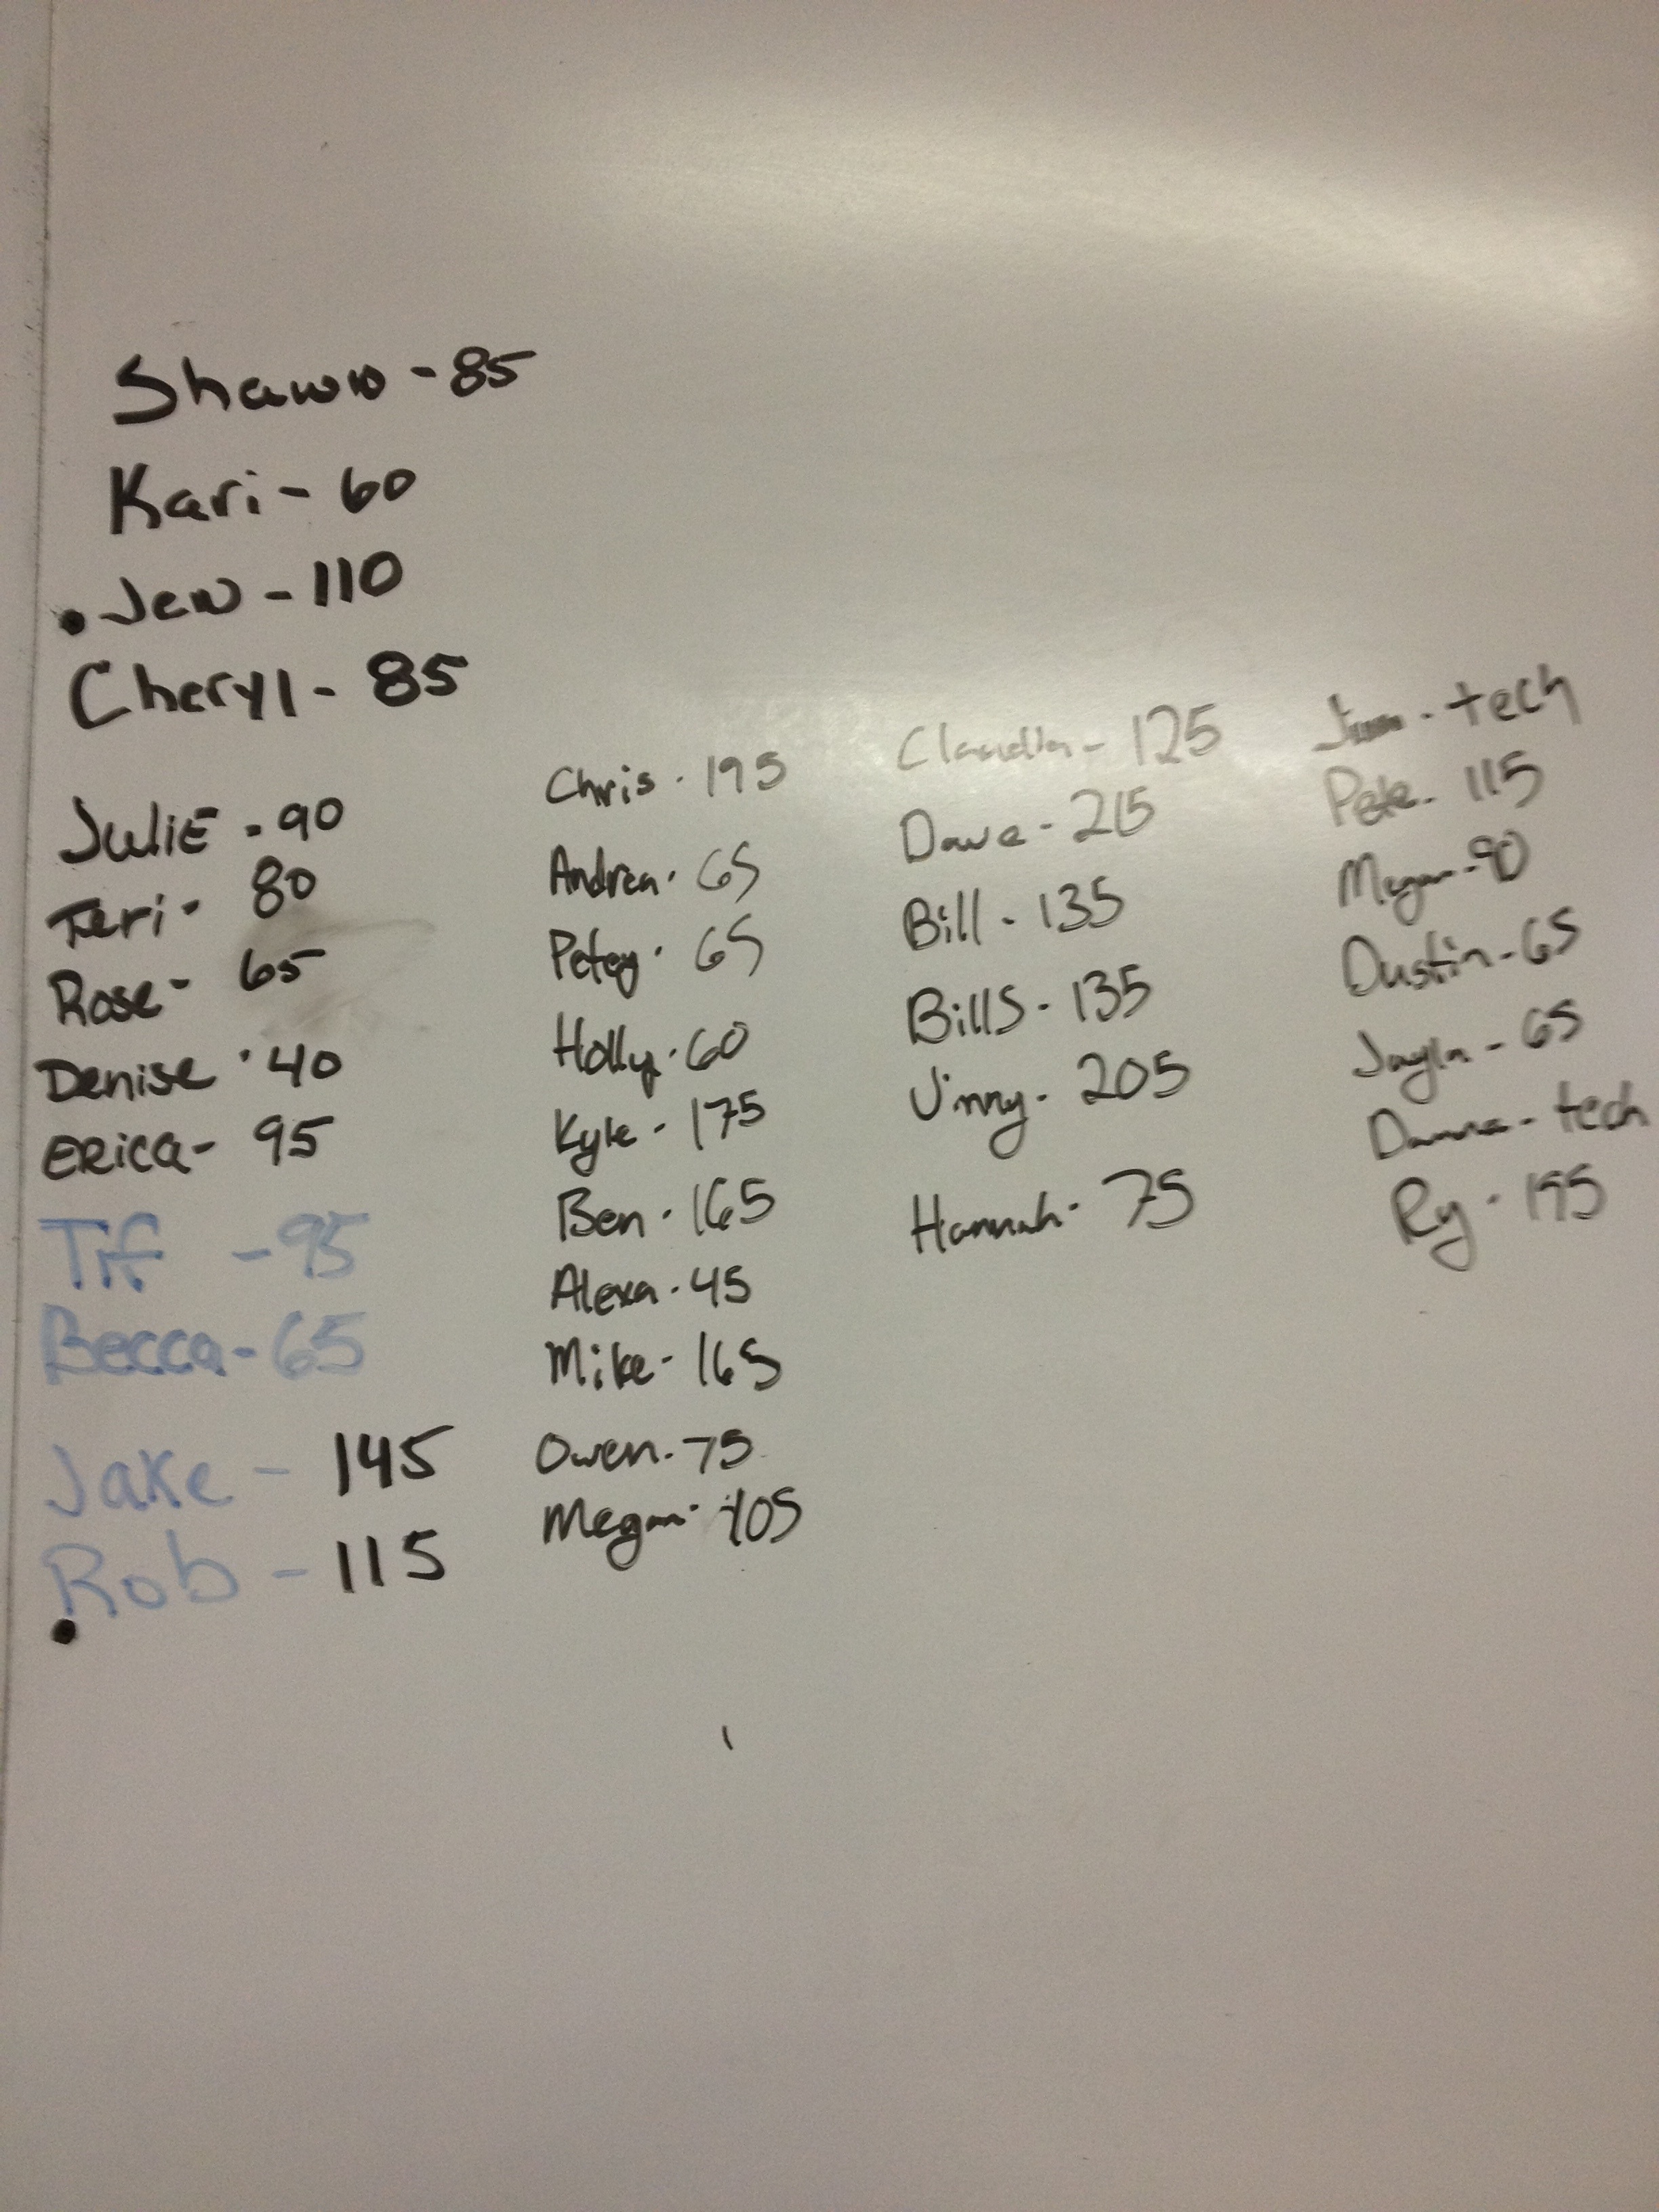 Shawn - 85
Kari - 60
• Jen - 110
Cheryl - 85
JuliE - 90
Teri - 80
Rose - 65
Denise - 40
Erica - 95
Tif - 95
Becca - 65
Jake - 145
Rob - 115
Chris - 195
Andrea - 65
Petey - 65
Holly - 60
Kyle - 175
Ben - 165
Alexa - 45
Mike - 165
Owen - 75
Megan - 105
Claudia - 125
Dave - 215
Bill - 135
BillS - 135
Jinny - 205
Hannah - 75
Jim - tech
Pete - 115
Megan - 90
Dustin - 65
Jayla - 65
- tech
Ry - 195